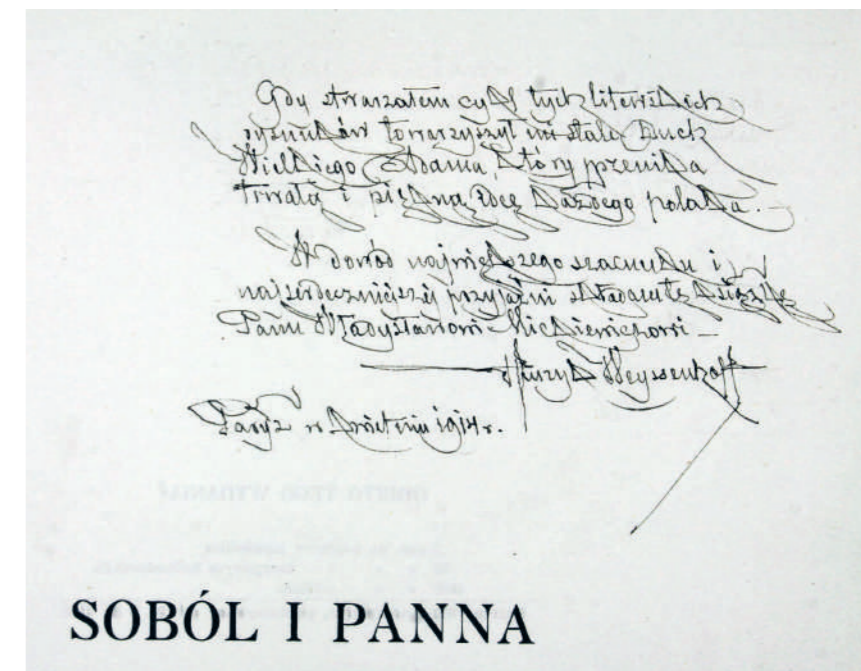 Gdy stwarzałem cykl tych literackich
rysunków towarzyszył mi stale Duch
Wielkiego Adama, który przenika
trwałą i piękną ideę każdego polaka. —
W dowód największego szacunku i
najserdeczniejszej przyjaźni składam tę książkę
Panu Władysławowi Mickiewiczowi —
Henryk Weyssenhoff
Paryż w kwietniu 1914 r.
ODBITO TEGO WYDANIA
SOBÓL I PANNA